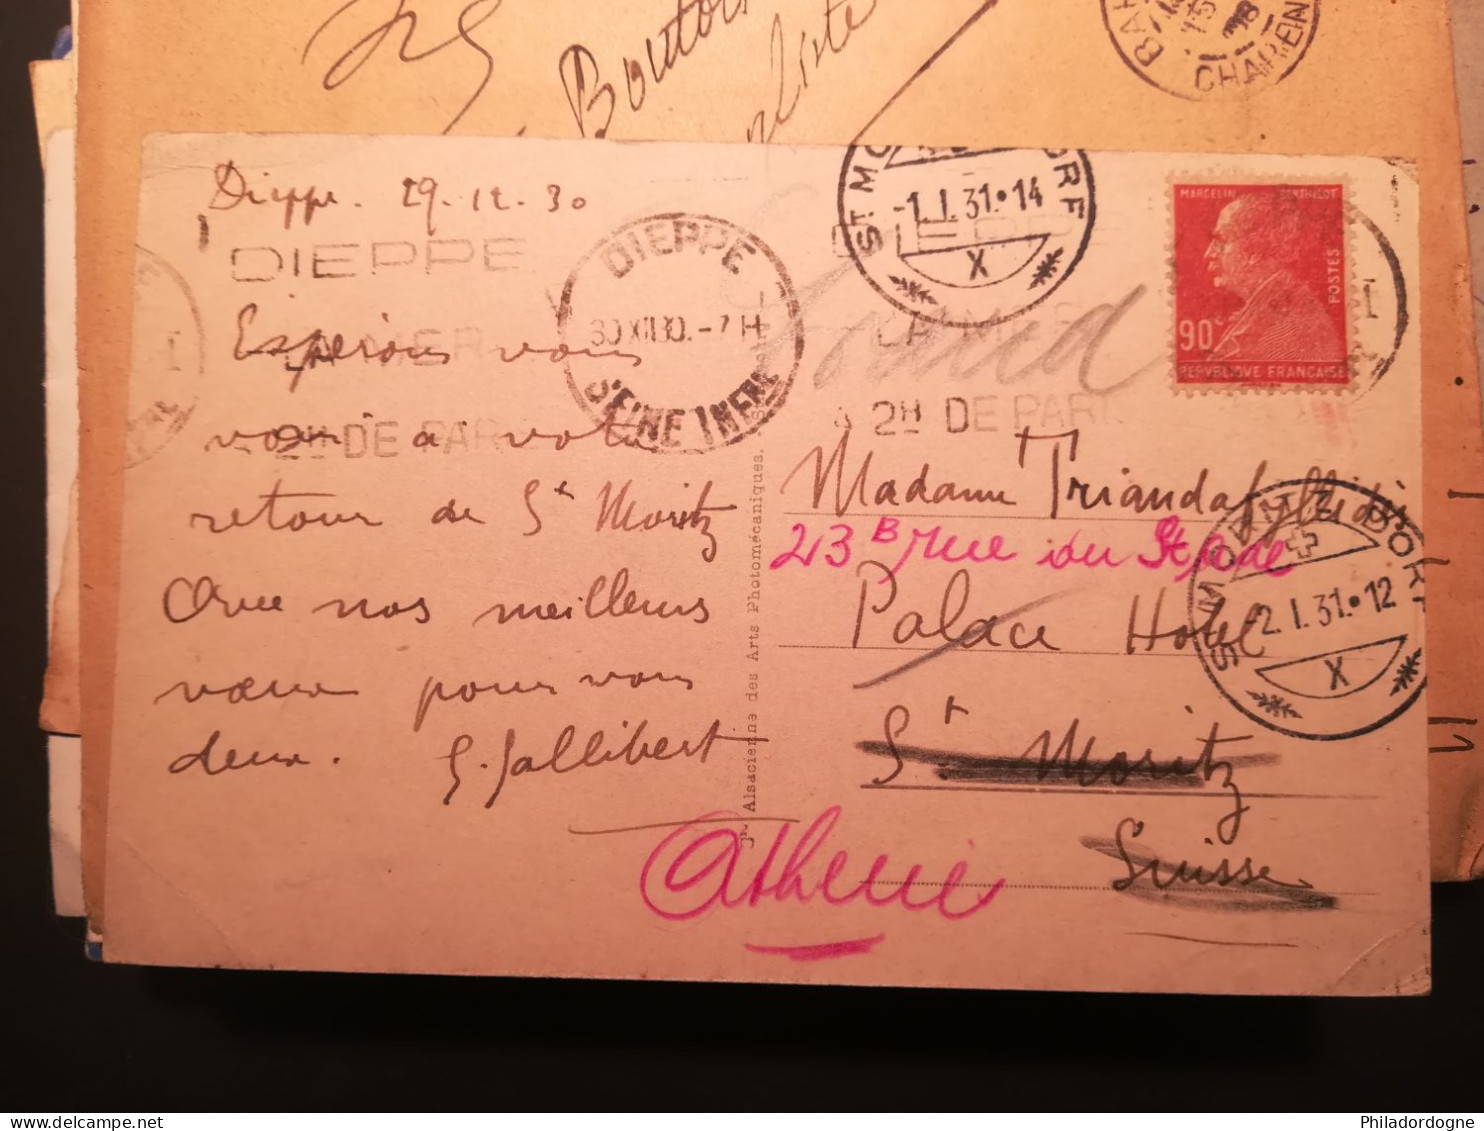 Boutois
Dieppe. 29.12.30
Espérons vous
voir à votre
retour de St Moritz
Avec nos meilleurs
vœux pour vous
deux. G. Jallibert
DIEPPE
LA MER
A 2H DE PARIS
DIEPPE
30 XII 30. -7 H
SEINE INFRE
ST MORITZ DORF
-1.I.31.14
X
LA MER
A 2H DE PARIS
MARCELIN BERTHELOT
POSTES
90c
REPVBLIQVE FRANÇAISE
Madame Triandafyllidis
23 B rue du Stade
Palace Hotel
St Moritz
Suisse
Athènes
ST MORITZ DORF
-2.I.31.12
X
Alsacienne des Arts Photomécaniques.
CHAREN
Philadordogne